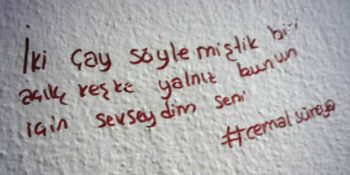 İki çay söylemiştik biri
açık, keşke yalnız bunun
için sevseydim seni
#cemalsüreya